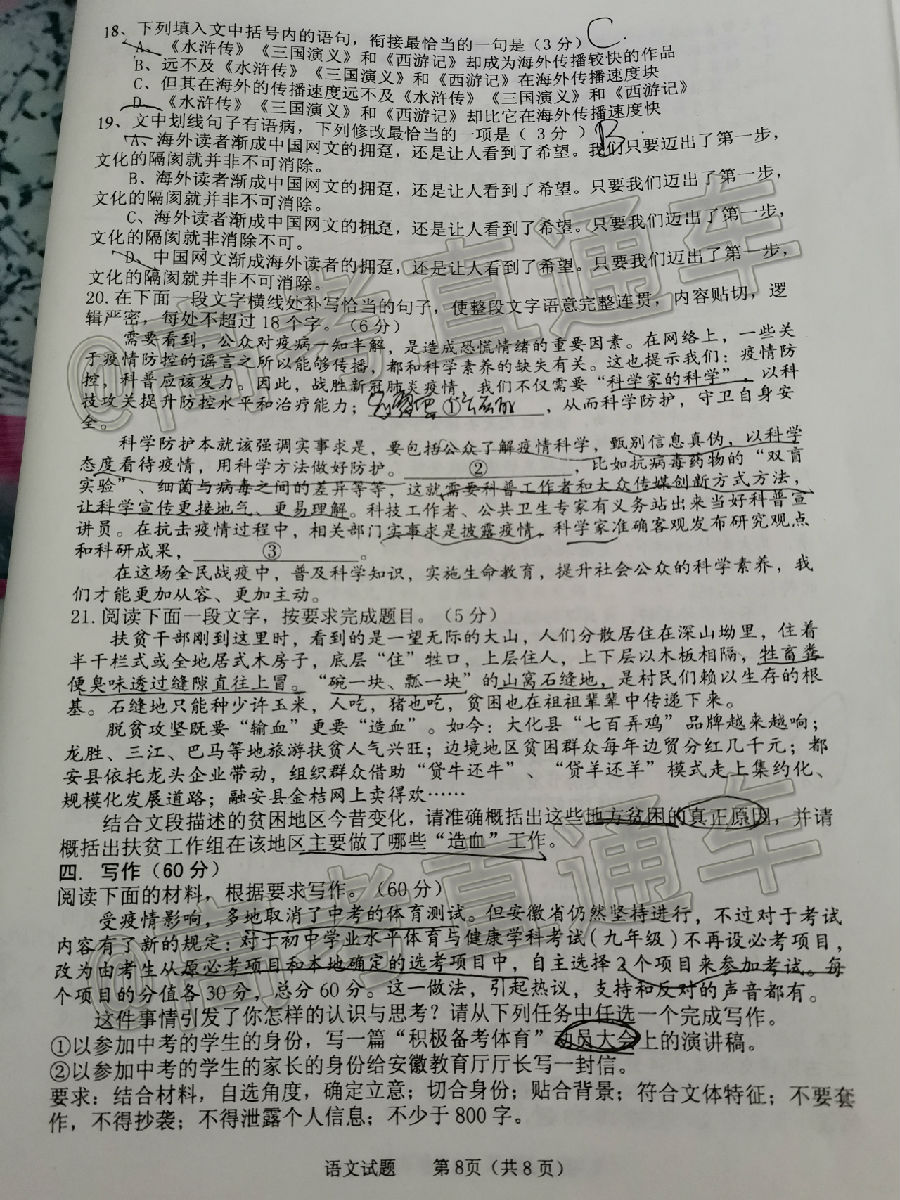 18、下列填入文中括号内的语句，衔接最恰当的一句是（3分）C.
A、《水浒传》《三国演义》和《西游记》却成为海外传播较快的作品
B、远不及《水浒传》《三国演义》和《西游记》在海外传播速度块
C、但其在海外的传播速度远不及《水浒传》《三国演义》和《西游记》
D、《水浒传》《三国演义》和《西游记》却比它在海外传播速度快
19、文中划线句子有语病，下列修改最恰当的一项是（ 3分 ）B
A、海外读者渐成中国网文的拥趸，还是让人看到了希望。我们只要迈出了第一步，
文化的隔阂就并非不可消除。
B、海外读者渐成中国网文的拥趸，还是让人看到了希望。只要我们迈出了第一步，
文化的隔阂就并非不可消除。
C、海外读者渐成中国网文的拥趸，还是让人看到了希望。只要我们迈出了第一步，
文化的隔阂就非消除不可。
D、中国网文渐成海外读者的拥趸，还是让人看到了希望。只要我们迈出了第一步，
文化的隔阂就并非不可消除。
20.在下面一段文字横线处补写恰当的句子，使整段文字语意完整连贯，内容贴切，逻
辑严密，每处不超过18个字。（6分）
需要看到，公众对疫病一知半解，是造成恐慌情绪的重要因素。在网络上，一些关
于疫情防控的谣言之所以能够传播，都和科学素养的缺失有关。这也提示我们：疫情防
控，科普应该发力。因此，战胜新冠肺炎疫情，我们不仅需要“科学家的科学”，以科
技攻关提升防控水平和治疗能力；①，从而科学防护，守卫自身安
全。
科学防护本就该强调实事求是，要包括公众了解疫情科学，甄别信息真伪，以科学
态度看待疫情，用科学方法做好防护。②，比如抗病毒药物的“双盲
实验”、细菌与病毒之间的差异等等，这就需要科普工作者和大众传媒创新方式方法，
让科学宣传更接地气、更易理解。科技工作者、公共卫生专家有义务站出来当好科普宣
讲员。在抗击疫情过程中，相关部门实事求是披露疫情，科学家准确客观发布研究观点
和科研成果，③。
在这场全民战疫中，普及科学知识，实施生命教育，提升社会公众的科学素养，我
们才能更加从容、更加主动。
21.阅读下面一段文字，按要求完成题目。（5分）
扶贫干部刚到这里时，看到的是一望无际的大山，人们分散居住在深山坳里，住着
半干栏式或全地居式木房子，底层“住”牲口，上层住人，上下层以木板相隔，牲畜粪
便臭味透过缝隙直往上冒。“碗一块、瓢一块”的山窝石缝地，是村民们赖以生存的根
基。石缝地只能种少许玉米，人吃，猪也吃，贫困也在祖祖辈辈中传递下来。
脱贫攻坚既要“输血”更要“造血”。如今：大化县“七百弄鸡”品牌越来越响；
龙胜、三江、巴马等地旅游扶贫人气兴旺；边境地区贫困群众每年边贸分红几千元；都
安县依托龙头企业带动，组织群众借助“贷牛还牛”、“贷羊还羊”模式走上集约化、
规模化发展道路；融安县金桔网上卖得欢……
结合文段描述的贫困地区今昔变化，请准确概括出这些地方贫困的真正原因，并请
概括出扶贫工作组在该地区主要做了哪些“造血”工作。
四．写作（60分）
阅读下面的材料，根据要求写作。（60分）
受疫情影响，多地取消了中考的体育测试。但安徽省仍然坚持进行，不过对于考试
内容有了新的规定：对于初中学业水平体育与健康学科考试（九年级）不再设必考项目，
改为由考生从原必考项目和本地确定的选考项目中，自主选择2个项目来参加考试。每
个项目的分值各30分，总分60分。这一做法，引起热议，支持和反对的声音都有。
这件事情引发了你怎样的认识与思考？请从下列任务中任选一个完成写作。
①以参加中考的学生的身份，写一篇“积极备考体育”动员大会上的演讲稿。
②以参加中考的学生的家长的身份给安徽教育厅厅长写一封信。
要求：结合材料，自选角度，确定立意；切合身份；贴合背景；符合文体特征；不要套
作，不得抄袭；不得泄露个人信息；不少于800字。
语文试题 第8页（共8页）
@高考直通车
@高考直通车